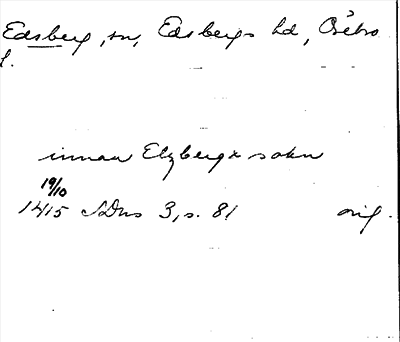 Edsberg, sn, Edsbergs hd, Örebro
l.
innan Etzbergx sokn
19/10
1415 SDns 3, s. 81 orig.